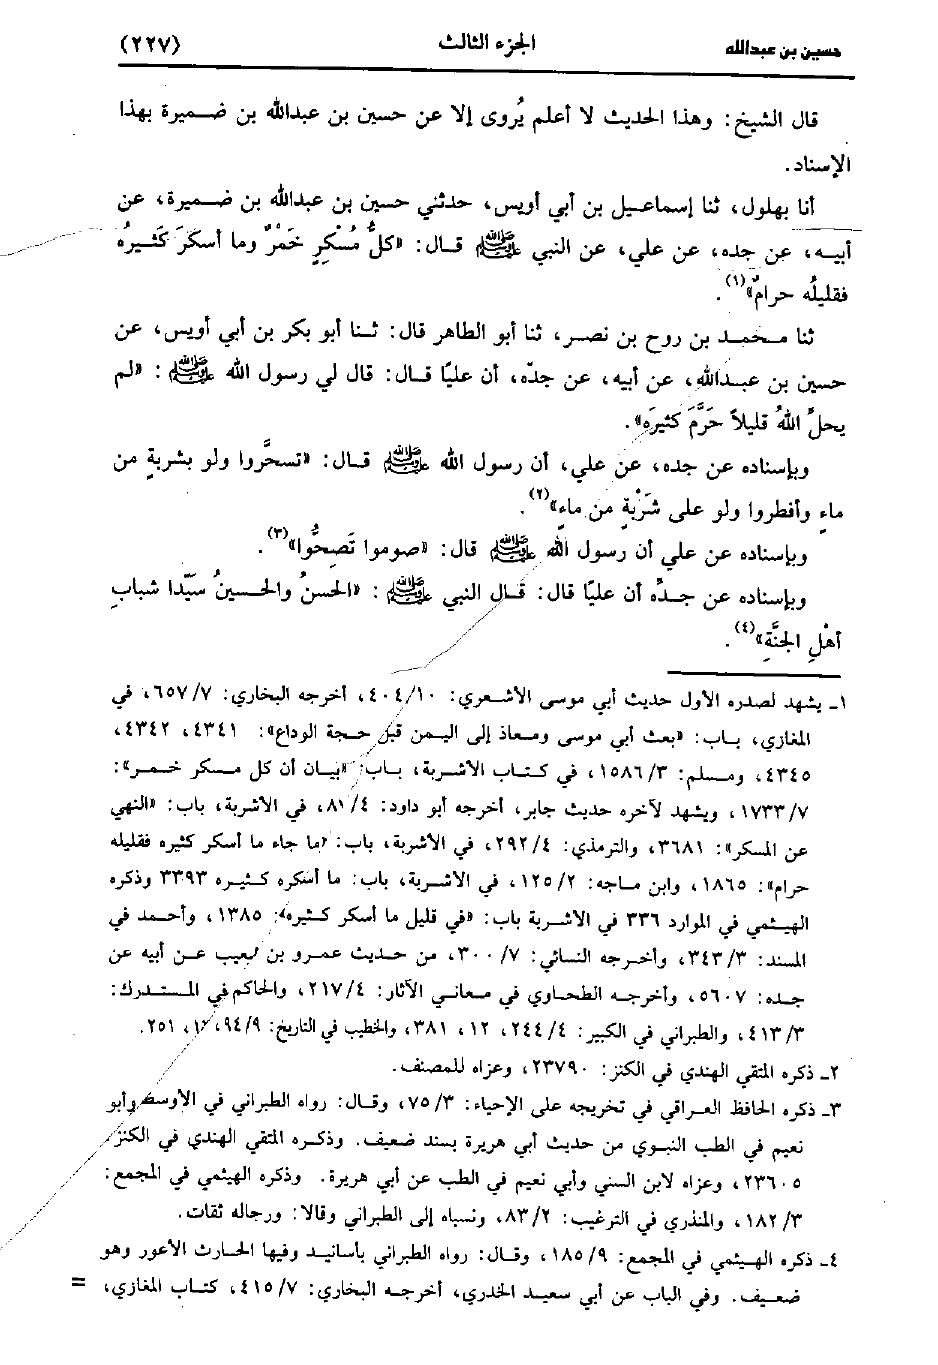 حسين بن عبدالله الجزء الثالث (٢٢٧)
قال الشيخ: وهذا الحديث لا أعلم يُروى إلا عن حسين بن عبدالله بن ضميرة بهذا
الإسناد.
أنا بهلول، ثنا إسماعيل بن أبي أويس، حدثني حسين بن عبدالله بن ضميرة، عن
أبيه، عن جده، عن علي، عن النبي ﷺ قال: «كلُّ مُسْكرٍ خَمْرٌ وما أسكرَ كَثيرُه
فقليلُه حرامٌ»(١).
ثنا محمد بن روح بن نصر، ثنا أبو الطاهر قال: ثنا أبو بكر بن أبي أويس، عن
حسين بن عبدالله، عن أبيه، عن جدّه، أن عليًا قال: قال لي رسول الله ﷺ: «لم
يحلَّ اللهُ قليلاً حَرَّمَ كثيرَه».
وبإسناده عن جده، عن علي، أن رسول الله ﷺ قال: «تسحَّروا ولو بشربةٍ من
ماءٍ وأفطروا ولو على شَرْبةٍ من ماءٍ»(٢).
وبإسناده عن علي أن رسول الله ﷺ قال: «صوموا تَصِحُّوا»(٣).
وبإسناده عن جدِّه أن عليًا قال: قال النبي ﷺ: «الحسنُ والحسينُ سيِّدا شبابِ
أهْلِ الجنَّةِ»(٤).
١ـ يشهد لصدره الأول حديث أبي موسى الأشعري: ٤٠٤/١٠، أخرجه البخاري: ٦٥٧/٧، في
المغازي، باب: «بعث أبي موسى ومعاذ إلى اليمن قبل حجة الوداع»: ٤٣٤١، ٤٣٤٢،
٤٣٤٥، ومسلم: ١٥٨٦/٣، في كتاب الأشربة، باب: «بيان أن كل مسكر خمر»:
١٧٣٣/٧، ويشهد لآخره حديث جابر، أخرجه أبو داود: ٨١/٤، في الأشربة، باب: «النهي
عن المسكر»: ٣٦٨١، والترمذي: ٢٩٢/٤، في الأشربة، باب: «ما جاء ما أسكر كثيره فقليله
حرام»: ١٨٦٥، وابن ماجه: ١٢٥/٢، في الأشربة، باب: ما أسكره كثيره ٣٣٩٣ وذكره
الهيثمي في الموارد ٣٣٦ في الأشربة باب: «في قليل ما أسكر كثيره»: ١٣٨٥، وأحمد في
المسند: ٣٤٣/٣، وأخرجه النسائي: ٣٠٠/٧، من حديث عمرو بن عن أبيه عن
جده: ٥٦٠٧، وأخرجه الطحاوي في معاني الآثار: ٢١٧/٤، والحاكم في المستدرك:
٤١٣/٣، والطبراني في الكبير: ٢٤٤/٤، ١٢، ٣٨١، والخطيب في التاريخ: ٩٤/٩، ٢٥١.
٢ـ ذكره المتقي الهندي في الكنز: ٢٣٧٩٠، وعزاه للمصنف.
٣ـ ذكره الحافظ العراقي في تخريجه على الإحياء: ٧٥/٣، وقال: رواه الطبراني في الأوسط وأبو
نعيم في الطب النبوي من حديث أبي هريرة بسند ضعيف. وذكره المتقي الهندي في الكنز:
٢٣٦٠٥، وعزاه لابن السني وأبي نعيم في الطب عن أبي هريرة. وذكره الهيثمي في المجمع:
١٨٢/٣، والمنذري في الترغيب: ٨٣/٢، ونسباه إلى الطبراني وقالا: ورجاله ثقات.
٤ـ ذكره الهيثمي في المجمع: ١٨٥/٩، وقال: رواه الطبراني بأسانيد وفيها الحارث الأعور وهو
ضعيف. وفي الباب عن أبي سعيد الخدري، أخرجه البخاري: ٤١٥/٧، كتاب المغازي، =